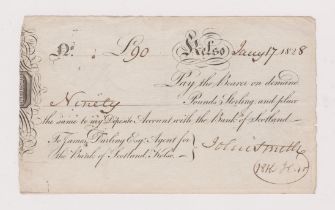 No. £90 Kelso Jany 17 1828
Pay the Bearer on demand
Ninety Pounds Sterling and place
the same to my Deposit Account with the Bank of Scotland
To James Darling Esqr. Agent for
the Bank of Scotland Kelso
John Smith